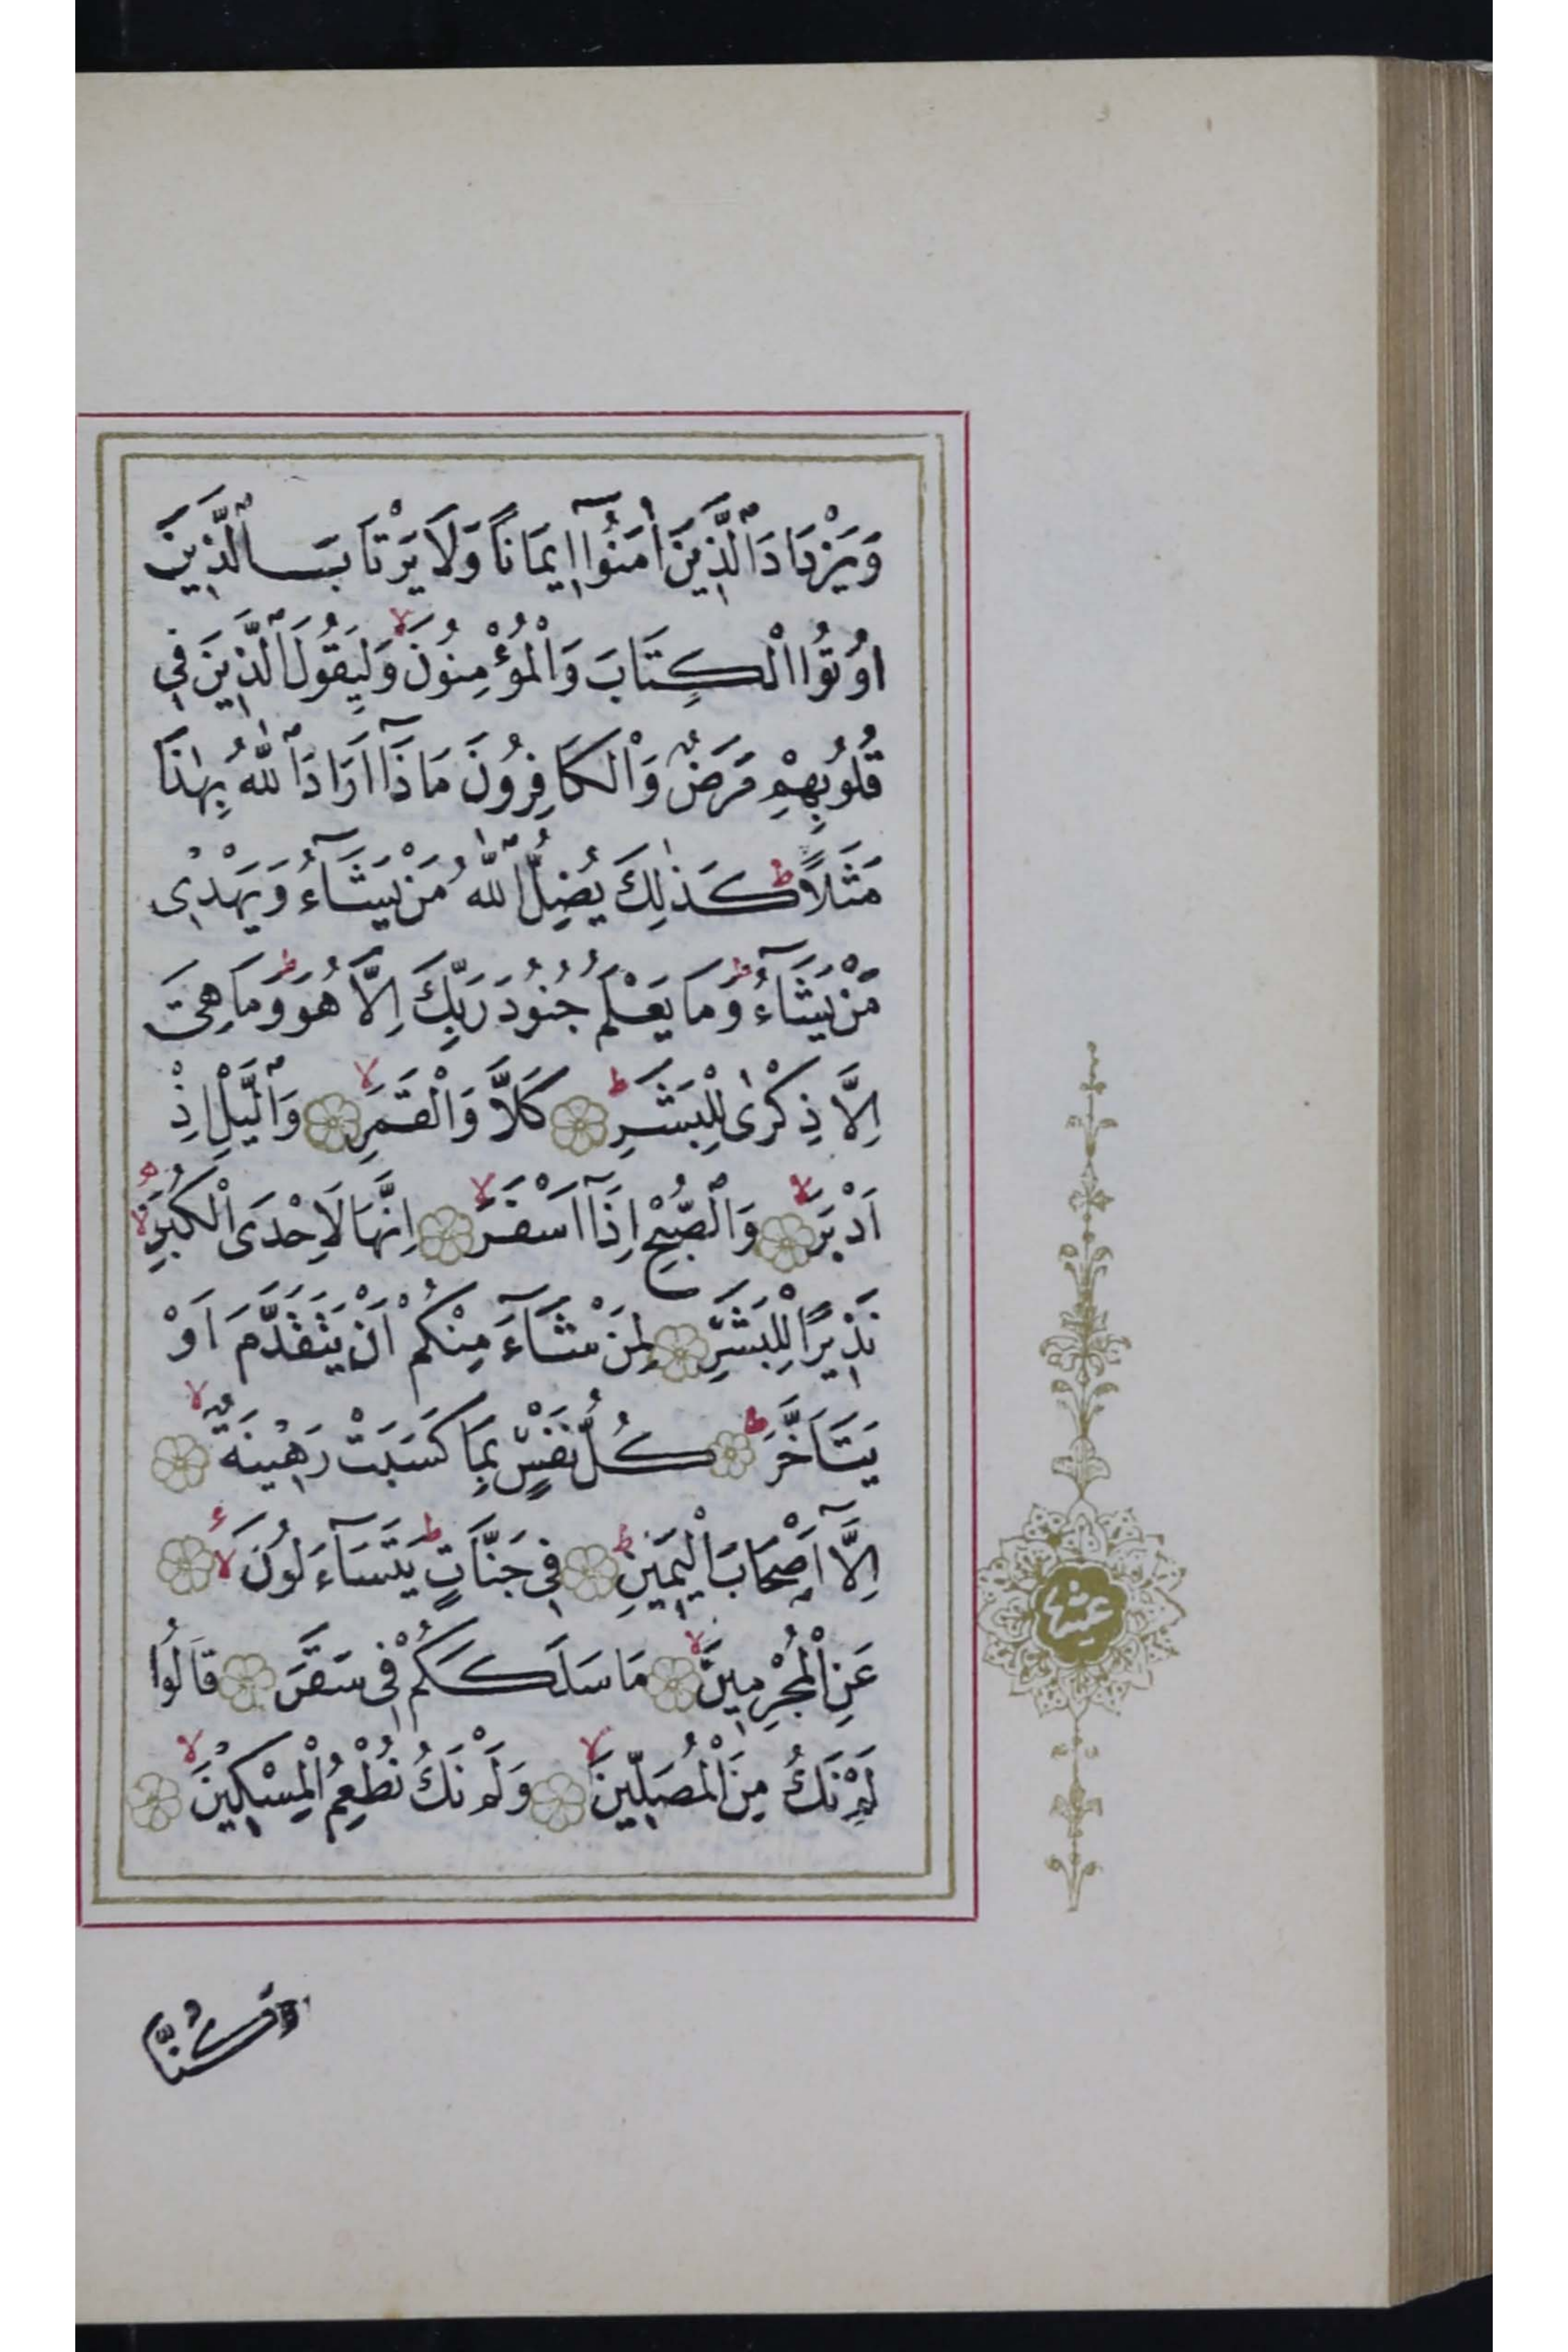 وَيَزْدَادَ ٱلَّذِينَ اٰمَنُوٓا اِيمَانًا وَلَا يَرْتَابَ ٱلَّذِينَ
اُوتُوا الْكِتَابَ وَالْمُؤْمِنُونَ ۙ وَلِيَقُولَ ٱلَّذِينَ فِي
قُلُوبِهِمْ مَرَضٌ وَالْكَافِرُونَ مَاذَٓا اَرَادَ ٱللّٰهُ بِهٰذَا
مَثَلًا ؕ كَذٰلِكَ يُضِلُّ ٱللّٰهُ مَنْ يَشَٓاءُ وَيَهْدِى
مَنْ يَشَٓاءُ ؕ وَمَا يَعْلَمُ جُنُودَ رَبِّكَ اِلَّا هُوَ ؕ وَمَا هِىَ
اِلَّا ذِكْرٰى لِلْبَشَرِ ؕ كَلَّا وَالْقَمَرِ ۙ وَٱلَّيْلِ اِذْ
اَدْبَرَ ۙ وَٱلصُّبْحِ اِذَٓا اَسْفَرَ ۙ اِنَّهَا لَاِحْدَى الْكُبَرِ ۙ
نَذِيرًا لِلْبَشَرِ لِمَنْ شَٓاءَ مِنْكُمْ اَنْ يَتَقَدَّمَ اَوْ
يَتَاَخَّرَ ؕ كُلُّ نَفْسٍ بِمَا كَسَبَتْ رَهِينَةٌ ۙ
اِلَّٓا اَصْحَابَ الْيَمِينِ ؕ فِي جَنَّاتٍ ؕ يَتَسَٓاءَلُونَ ۙ
عَنِ الْمُجْرِمِينَ ۙ مَا سَلَكَكُمْ فِى سَقَرَ قَالُوا
لَمْ نَكُ مِنَ الْمُصَلِّينَ ۙ وَلَمْ نَكُ نُطْعِمُ الْمِسْكِينَ ۙ
عشر
وَكُنَّا